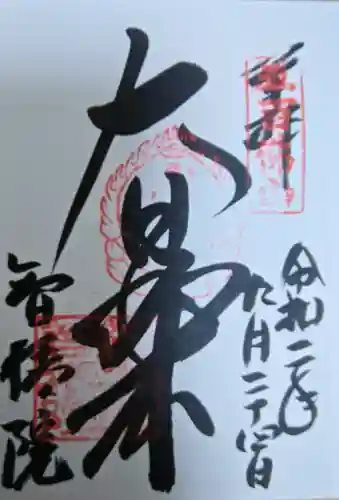 奉拝
令和二年
九月二十四日
大日如来
智積院